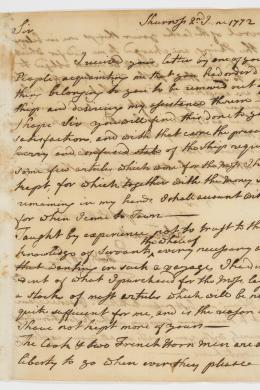 Sheerness 2d June 1772
Sir
I received your letter by one of your
People, acquainting me that you had order'd every
thing belonging to you to be removed out of the
Ship and desiring my assistance therein
I hope Sir you will find this done to your
satisfaction, and with that care the present
hurry and confused state of the Ship required
some few articles which were for the Mess I have
kept, for which together with the Money I have
remaining in my hands I shall account with you
for when I come to Town —
Taught by experience not to trust to the
the whole of
knowledge of Servants every necessary article
that wanting in such a voyage, I had
out of what I purchased for the Mess laid
a stock of most articles which will be now
quite sufficient for me, and is the reason why
I have not kept more of yours —
The Cook & two French Horn Men are at
liberty to go when ever they please